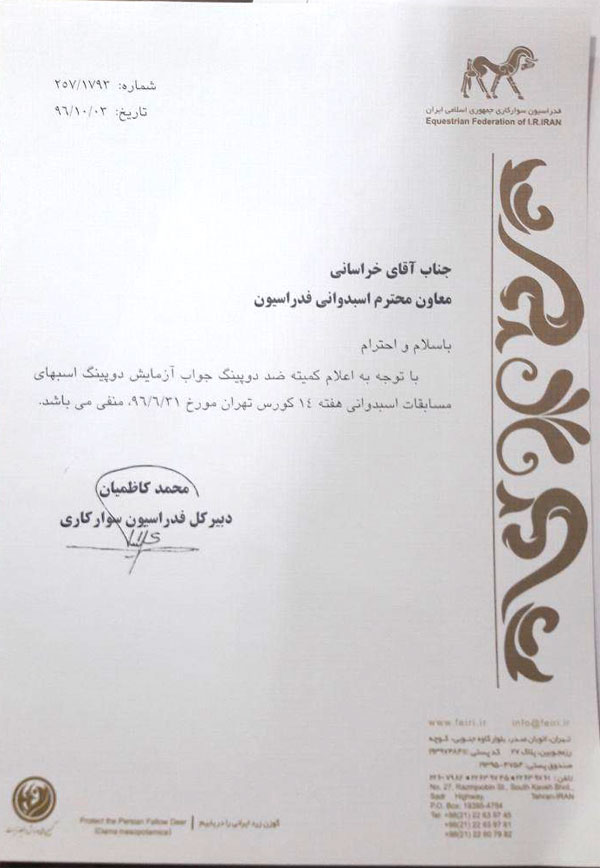 فدراسیون سوارکاری جمهوری اسلامی ایران
Equestrian Federation of I.R.IRAN
شماره: ۲۵۷/۱۷۹۳
تاریخ: ۹۶/۱۰/۰۳
جناب آقای خراسانی
معاون محترم اسبدوانی فدراسیون
باسلام و احترام
با توجه به اعلام کمیته ضد دوپینگ جواب آزمایش دوپینگ اسبهای
مسابقات اسبدوانی هفته ۱۴ کورس تهران مورخ ۹۶/۶/۳۱، منفی می باشد.
محمد کاظمیان
دبیرکل فدراسیون سوارکاری
www.feiri.ir info@feiri.ir
تهران، اتوبان صدر، بلوار کاوه جنوبی، کوچه
پلاک ۲۷ کد پستی:
صندوق پستی: ۱۹۳۹۵-۴۷۵۴
تلفن:
No. 27, Razmjoobin St., South Kaveh Blvd.,
Sadr Highway, Tehran-IRAN
P.O. Box: 19395-4754
Tel: +98(21) 22 63 97 45
+98(21) 22 63 97 61
+98(21) 22 60 79 82
Protect the Persian Fallow Deer
(Dama mesopotamica)
گوزن زرد ایرانی را دریابیم